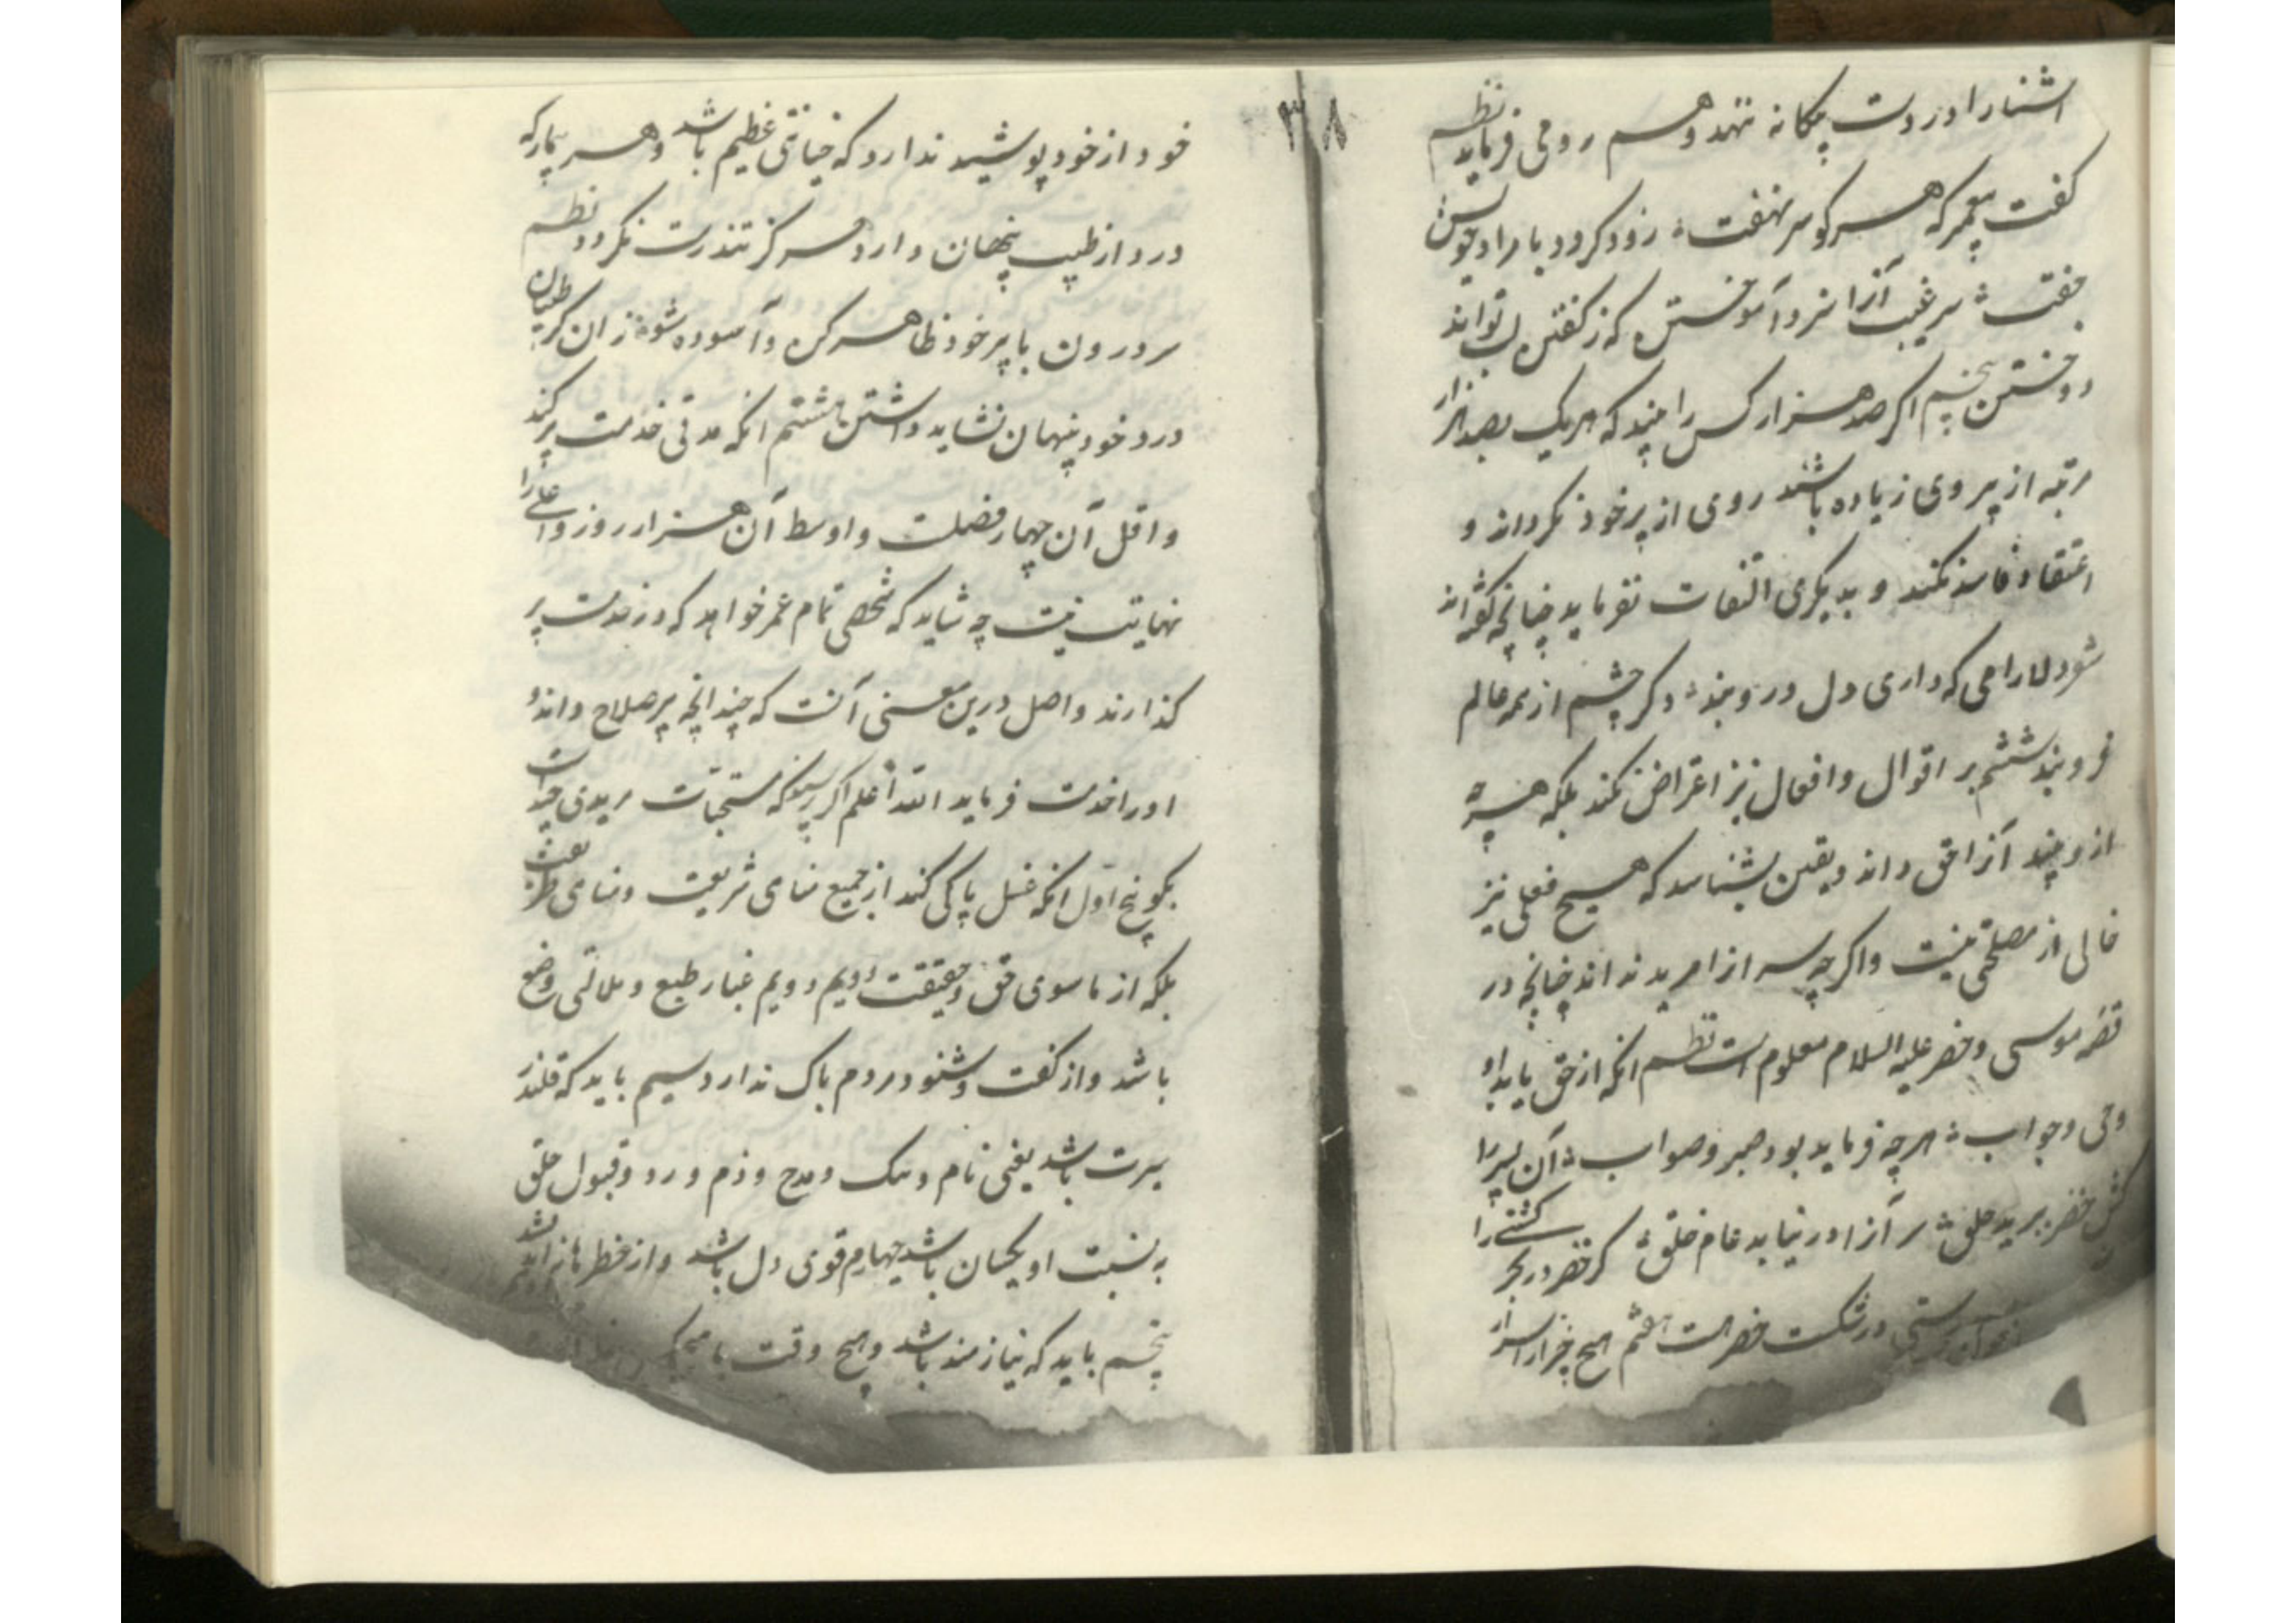 اشنا را در دست بیکانه ننهد و هم رومی فرماید نظم
کفت پیغمبر که هر کو سر نهفت زود کردد با مراد خویش
جفت سر غیب آنرا سزد آموختن که ز کفتن لب تواند
دوختن پنجم اکر صد هزار کس را بیند که هر یک بصد هزار
مرتبه از پیر وی زیاده باشند روی از پیر خود نکرداند و
اعتقاد فاسد نکند و بدیکری التفات نفرماید چنانچه کفته اند
شعر دلارامی که داری دل درو بند دکر چشم از همه عالم
فرو بند ششم بر اقوال و افعال پیر اعتراض نکند بلکه هر چه
ازو بیند آنرا حق داند و یقین بشناسد که هیچ فعلی پیر
خالی از مصلحتی نیست و اکرچه سر آنرا مرید نداند چنانچه در
قصه موسی و خضر علیه السلام معلوم است نظم انکه از حق یابد او
وحی و جواب هر چه فرماید بود صبر و صواب آن پسر را
کش خضر ببرید حلق سر آنرا در نیابد عام خلق کر خضر در بحر کشتی را
درستی در شکست خضر هست هفتم هیچ چیز از اسرار
۳۸
خود از خود پوشیده ندارد که خیانتی عظیم باشد و هر بیمار که
درد از طبیب پنهان دارد هرکز تندرست نکردد نظم
سر درون با پیر خود ظاهر کن و آسوده شو زان کز طبیبان
درد خود پنهان نشاید داشتن هشتم انکه مدتی خدمت پیر کند
و اقل آن چهار فصلست و اوسط آن هزار روز و اعلی را
نهایت نیست چه شاید که شخصی تمام عمر خواهد که در خدمت پیر
کذارند و اصل درین معنی آنست که چندانچه پیر صلاح داند
او را خدمت فرماید الله أعلم اکر پرسند که مستحبات مریدی چند است
بکو پنج اول انکه غسل پاکی کند از جمیع مناهی شریعت و مناهی طریقت
بلکه از ما سوی حق و حقیقت دویم دویم غبار طبع و ملامتی وضع
باشد و از کفت و شنود مردم باک ندارد سیم باید که قلندر
سیرت باشد یعنی نام و ننک و مدح و ذم و رد و قبول خلق
به نسبت او یکسان باشد چهارم قوی دل باشد و از خطرها
پنجم باید که نیازمند باشد و هیچ وقت با هیچکس